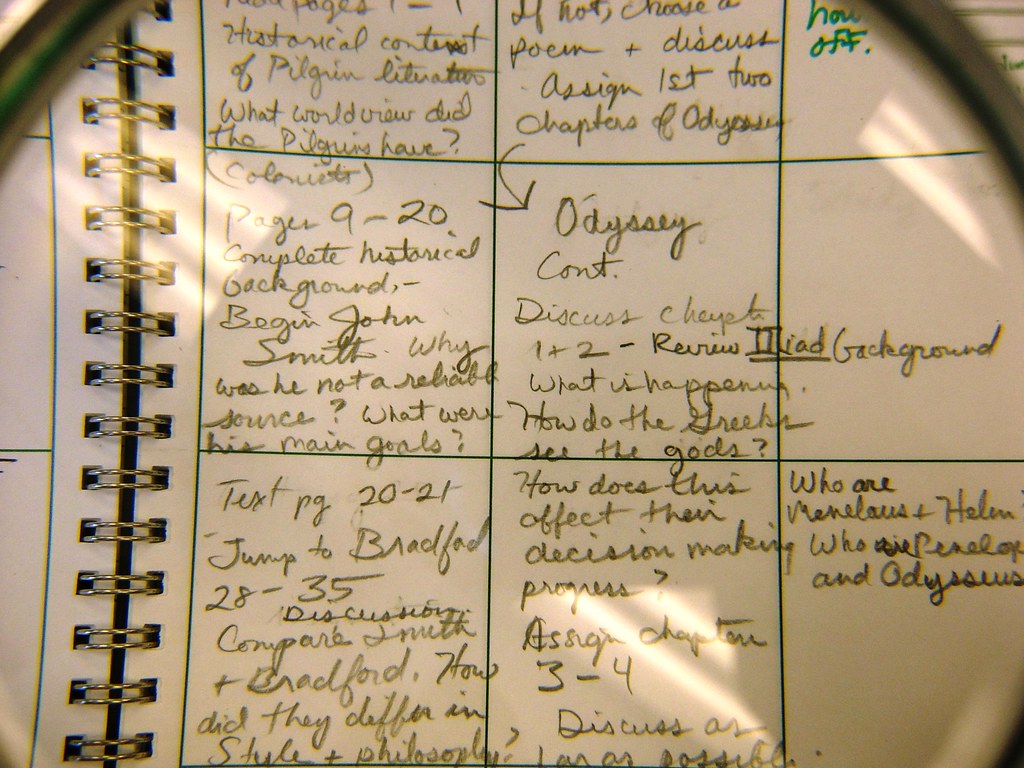 Historical content
of Pilgrin literature
What worldview did
the Pilgrims have?
(Colonists)
Pages 9-20
Complete historical
background,-
Begin John
Smith. Why
was he not a reliable
source? What were
his main goals?
Text pg 20-21
Jump to Bradford
28-35
Discussion
Compare Smith
+ Bradford. How
did they differ in
Style + philosophy?
If not, choose a
poem + discuss
Assign 1st two
chapters of Odyssey
Odyssey
Cont.
Discuss chapt
1+2 - Review Iliad background
What is happening.
How do the Greeks
see the gods?
How does this
affect their
decision making
progress?
Assign chapters
3-4
Discuss as
far as possible.
how
off.
Who are
Menelaus + Helen
Who are Penelop
and Odysseus